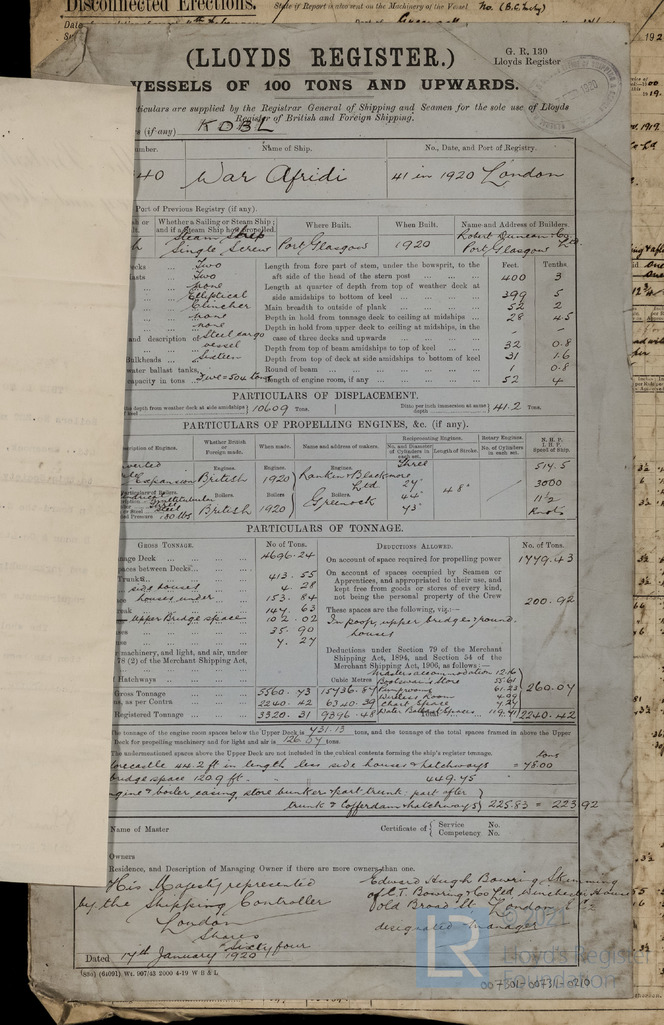 Disconnected Erections.
State if Report is also sent on the Machinery of the Vessel No. (B.C. Indy)
(LLOYDS REGISTER.)
G. R. 130
Lloyds Register
VESSELS OF 100 TONS AND UPWARDS.
particulars are supplied by the Registrar General of Shipping and Seamen for the sole use of Lloyds
Register of British and Foreign Shipping.
(if any) KDBL
Name of Ship.
No., Date, and Port of Registry.
40 War Afridi 41 in 1920 London
Port of Previous Registry (if any).
Whether a Sailing or Steam Ship;
and if a Steam Ship how propelled.
Where Built.
When Built.
Name and Address of Builders.
Steam Ship
Single Screw
Port Glasgow
1920
Robert Duncan & Co Ltd
Port Glasgow
Two
Two
none
Elliptical
Clincher
none
none
and description of Steel cargo
vessel
Bulkheads ... Sixteen
water ballast tanks,
capacity in tons ... Five = 504 tons
Feet. Tenths.
Length from fore part of stem, under the bowsprit, to the
aft side of the head of the stern post ... 400 3
Length at quarter of depth from top of weather deck at
side amidships to bottom of keel ... 399 5
Main breadth to outside of plank ... 52 2
Depth in hold from tonnage deck to ceiling at midships ... 28 45
Depth in hold from upper deck to ceiling at midships, in the
case of three decks and upwards ... - -
Depth from top of beam amidships to top of keel ... 32 0.8
Depth from top of deck at side amidships to bottom of keel 31 1.6
Round of beam ... 1 0.8
Length of engine room, if any ... 52 4
PARTICULARS OF DISPLACEMENT.
10609 Tons.
Ditto per inch immersion at same
depth 41.2 Tons.
PARTICULARS OF PROPELLING ENGINES, &c. (if any).
Description of Engines.
Whether British
or Foreign made.
When made.
Name and address of makers.
Reciprocating Engines.
No. and Diameter
of Cylinders in
each set.
Length of Stroke.
Rotary Engines.
No. of Cylinders
in each set.
N. H. P.
I. H. P.
Speed of Ship.
Inverted
Expansion
Engines.
British
Engines.
1920
Engines.
Rankin & Blackmore
Ltd
Three
27"
44"
73"
48"
514.5
3000
11½
Knots
Boilers.
Steel
180 lbs
Boilers
British
Boilers
1920
Boilers.
Greenock
PARTICULARS OF TONNAGE.
GROSS TONNAGE. No. of Tons.
Deck ... 4696.24
spaces between Decks ... 413.55
Trunks ... 4.28
side houses
houses, under 153.84
147.63
Upper Bridge space 102.02
35.90
7.27
machinery, and light, and air, under
78 (2) of the Merchant Shipping Act,
Hatchways
Gross Tonnage 5560.73 15736.87
as per Contra 2240.42 6340.39
Registered Tonnage 3320.31 9396.48
Cubic Metres
DEDUCTIONS ALLOWED. No. of Tons.
On account of space required for propelling power 1779.43
On account of spaces occupied by Seamen or
Apprentices, and appropriated to their use, and
kept free from goods or stores of every kind,
not being the personal property of the Crew 200.92
These spaces are the following, viz.:—
In poop, upper bridge & round
houses
Deductions under Section 79 of the Merchant
Shipping Act, 1894, and Section 54 of the
Merchant Shipping Act, 1906, as follows:—
Masters accommodation 12.16
Boatswain's Store 55.61
61.23
Wireless Room 4.09
Chart Space 7.27
Water Ballast Spaces 119.71
260.07
2240.42
The tonnage of the engine room spaces below the Upper Deck is 731.13 tons, and the tonnage of the total spaces framed in above the Upper
Deck for propelling machinery and for light and air is 126.07 tons.
The undermentioned spaces above the Upper Deck are not included in the cubical contents forming the ship's register tonnage. tons
forecastle 44.2 ft in length less side houses & hatchways = 78.00
bridge space 120.9 ft. " " " 449.75
engine & boiler casing, store bunker & part trunk part after
trunk & Cofferdam & hatchways 225.83 = 223.92
Name of Master
Certificate of Service No.
Competency No.
Owners
Residence, and Description of Managing Owner if there are more owners than one.
His Majesty represented
by the Shipping Controller
London
Shares
Sixty four
Edward Hugh Bowring Skimming
of C.T. Bowring & Co Ltd Winchester House
Old Broad St London E.C.2
designated manager
Dated 17th January 1920
(64091) Wt. 907/43 2000 4-19 W B & L
LR © 202
Lloyd's Register
Foundation
007301-007311-0210